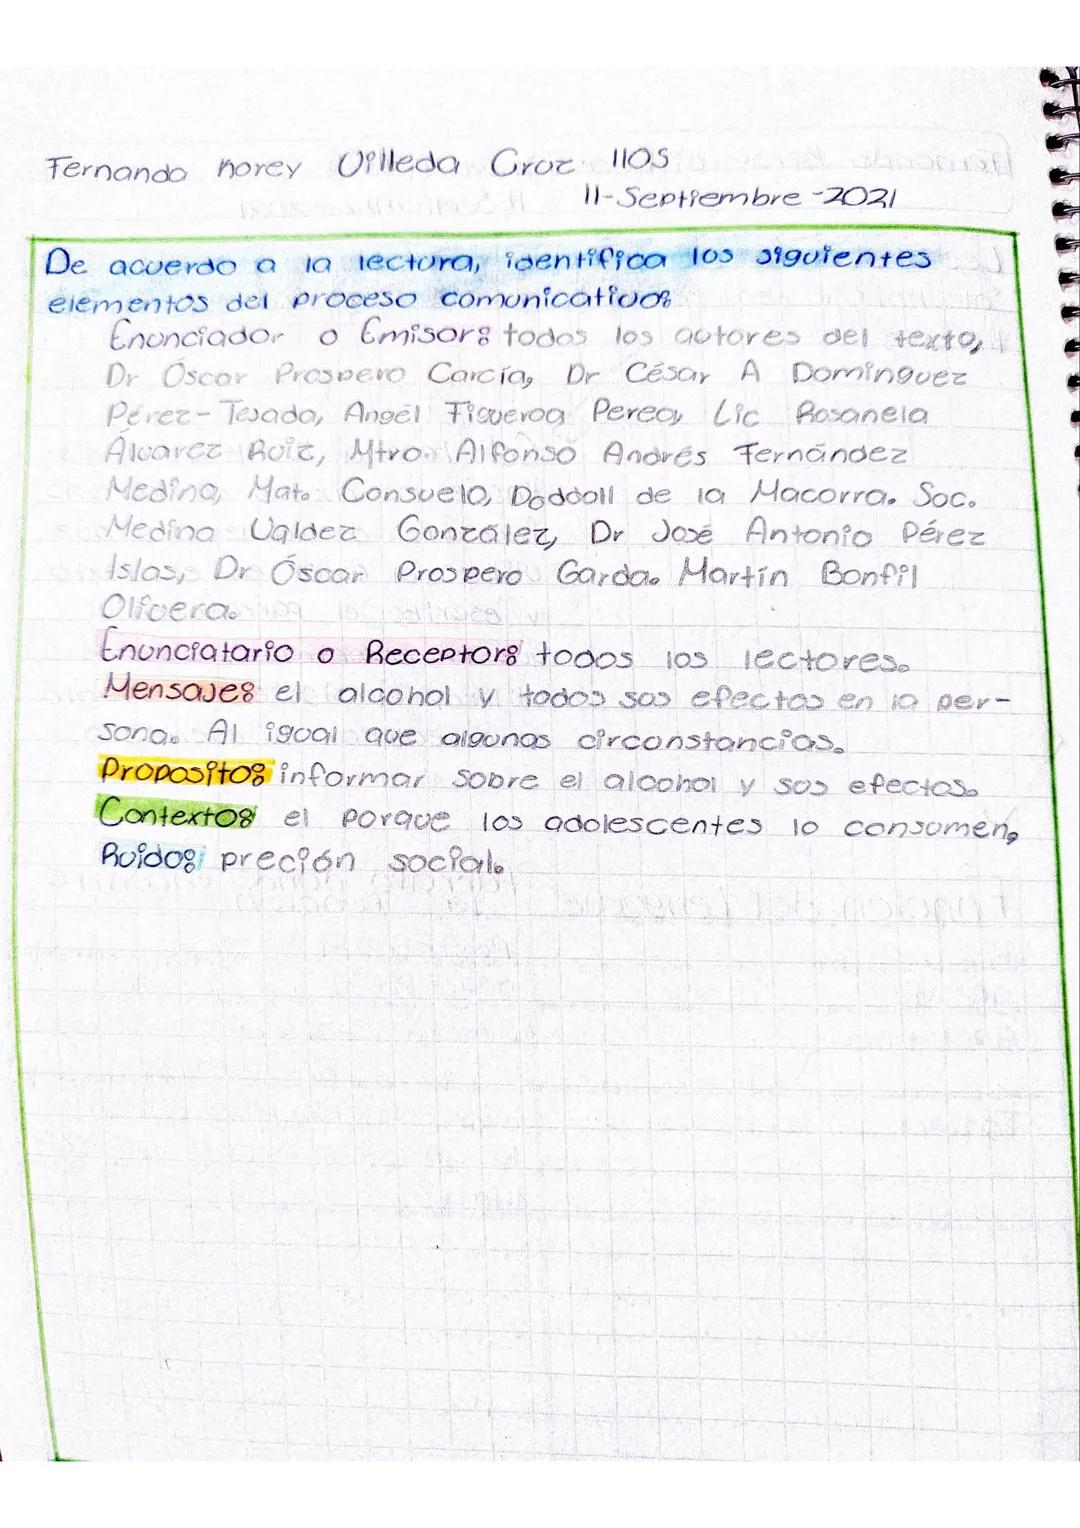 Fernando norey Villeda Cruz 110S
11-Septiembre-2021
De acuerdo a la lectura, identifica los siguientes
elementos del proceso comunicativo:
Enunciador o Emisor: todos los autores del texto,
Dr Óscar Prospero García, Dr César A Dominguez
Pérez-Tejada, Angel Figueroa Perea, Lic Rosanela
Álvarez Ruiz, Mtro. Alfonso Andrés Fernández
Medina, Mat. Consuelo, Doddoll de la Macorra. Soc.
Medina Valdez González, Dr José Antonio Pérez
Islas, Dr Óscar Prospero Garda. Martín Bonfil
Olivera.
Enunciatario o Receptor: todos los lectores.
Mensaje: el alcohol y todos sus efectos en la per-
sona. Al igual que algunas circonstancias.
Proposito: informar sobre el alcohol y sus efectos.
Contexto: el porque los adolescentes lo consumen,
Ruido: preción social.